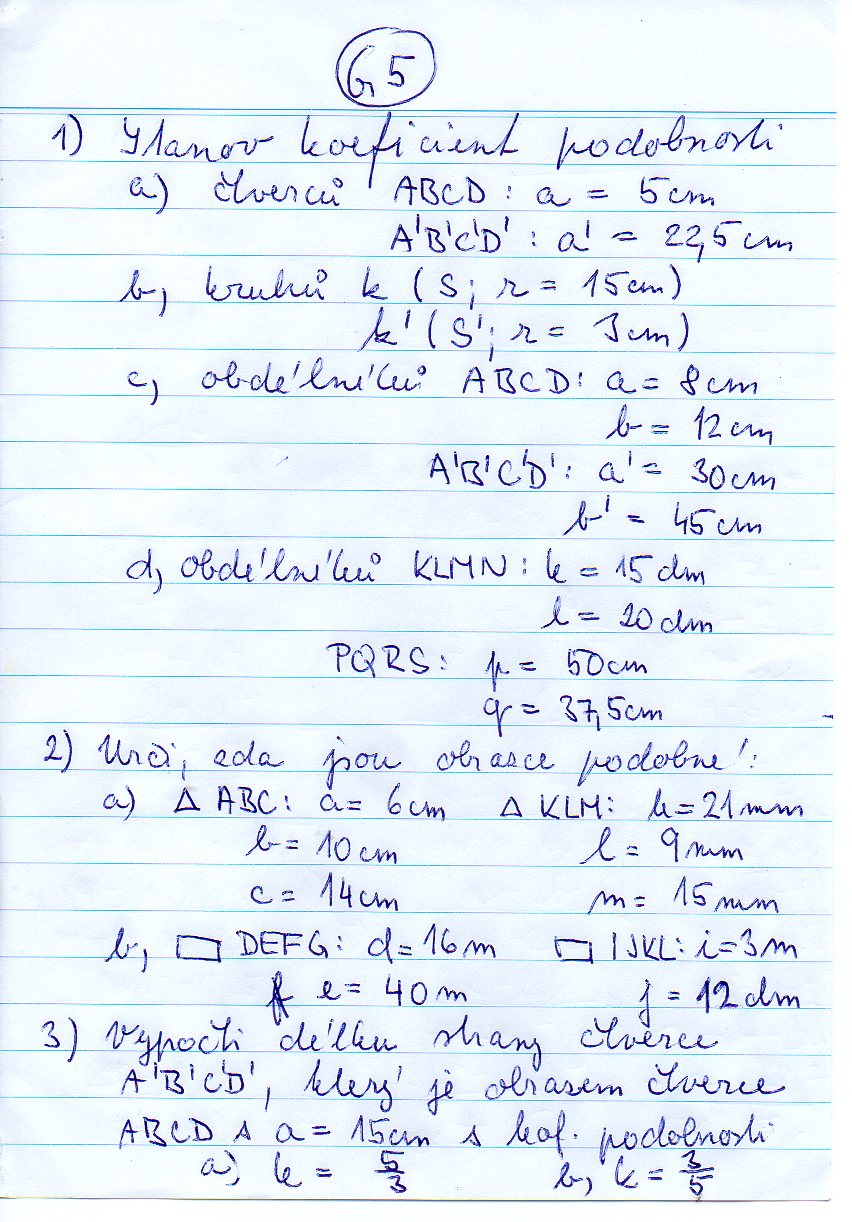 G5
1) Stanov koeficient podobnosti
a) čtverců ABCD: a = 5cm
A'B'C'D': a' = 22,5cm
b, kruhů k (S; r = 15cm)
k' (S'; r = 3cm)
c, obdélníků ABCD: a = 8cm
b = 12cm
A'B'C'D': a' = 30cm
b' = 45cm
d, obdélníků KLMN: k = 15dm
l = 20dm
PQRS: p = 50cm
q = 37,5cm
2) Urči, zda jsou obrazce podobné:
a) △ ABC: a = 6cm △ KLM: k = 21mm
b = 10cm l = 9mm
c = 14cm m = 15mm
b, ▭ DEFG: d = 16m ▭ IJKL: i = 3m
e = 40m j = 12dm
3) Vypočti délku strany čtverce
A'B'C'D', který je obrazem čtverce
ABCD s a = 15cm s koef. podobnosti
a) k = 5/3 b, k = 3/5